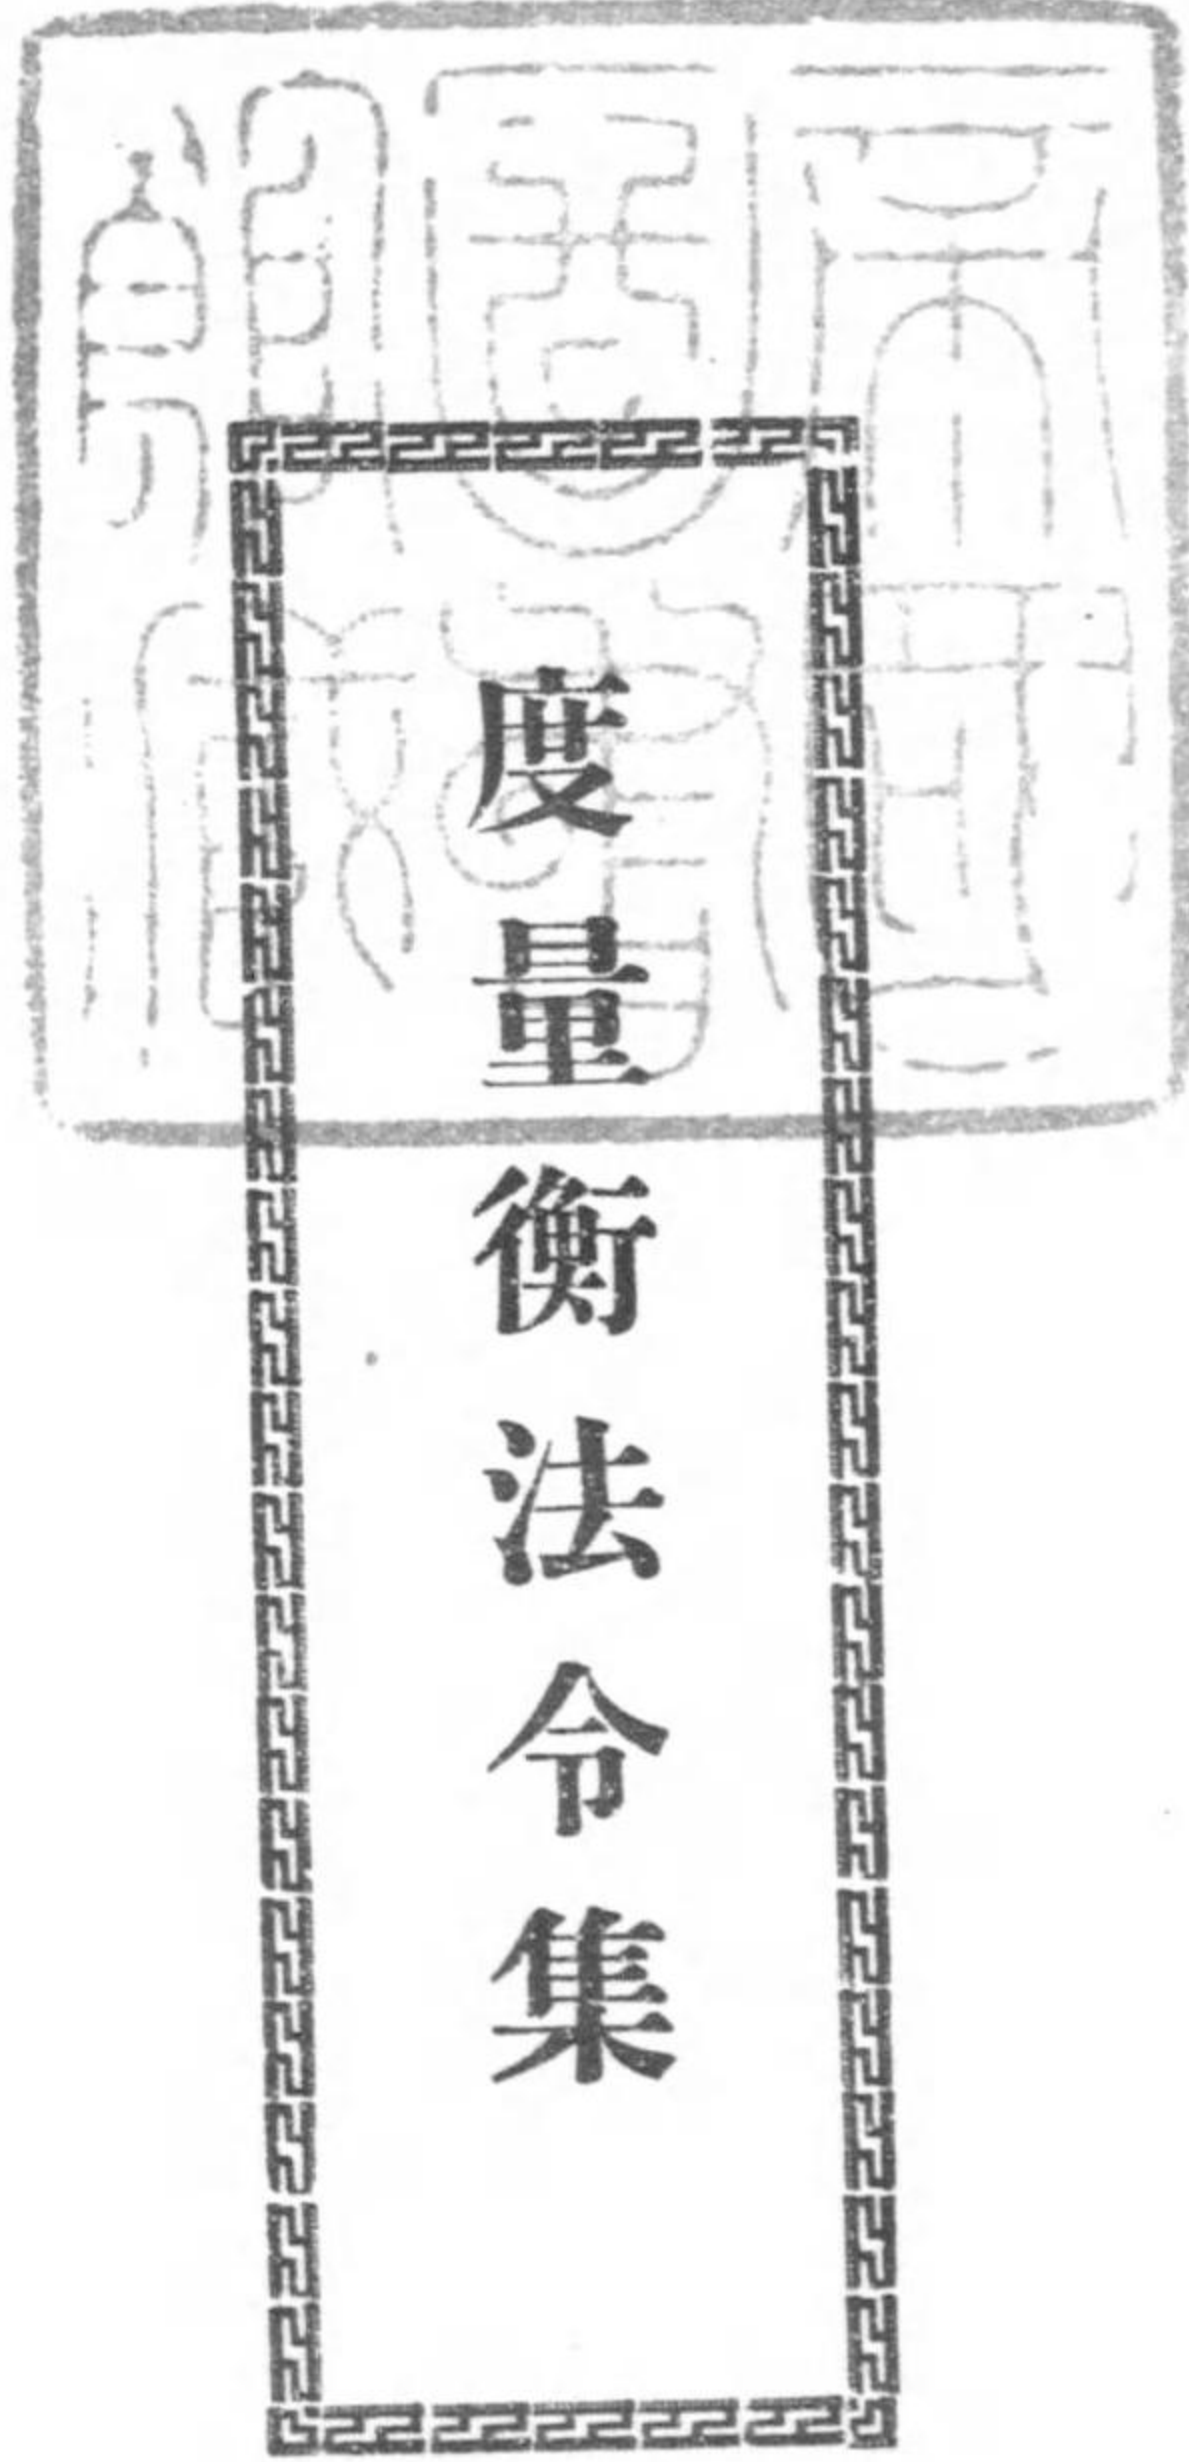 度量衡法令集